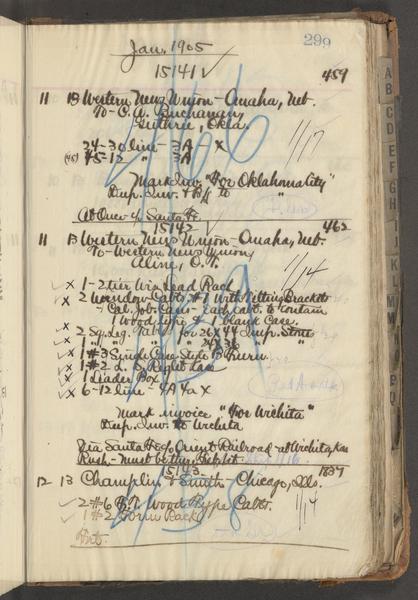 299
Jan. 1905
15141 ✓ 459
11 13 Western News Union - Omaha, Neb.
To - C. A. Buchanan,
Guthrie, Okla.
24-30 line - 3A - x
(45) 45-12 " 3A
1/17
Mark Inv. "For Oklahomality"
Dup. Inv. & B/L to "
At Once of Santa Fe.
15142 ✓ 462
11 13 Western News Union - Omaha, Neb.
To - Western News Union,
Aline, O.T.
1/14
x 1-2 tier Wia Lead Rack
x 2 Window Cabts #1 With Tilting Brackets
- Cal. Job Cans - Each Cabt. to contain
1 Wood type & 1 blank Case.
x 2 Sq. Leg. Tables for 26 x 44 Imp. Stone
x 1 " " " " 24 x 36 " "
x 1 #3 Single Case Style B Rerun
x 1 #2 L. S. Right
x 1 Leader Box
x 6-12 line 4A 4a x
Mark invoice "For Wichita"
Dup. Inv. to Wichita
Via Santa Fe c/o Orient Railroad at Wichita, Kan
Rush -
15143 1837
12 13 Champlin & Smith - Chicago, Ills.
2 #6 Wood Type Cabts.
1 #2 Form Rack
1/14